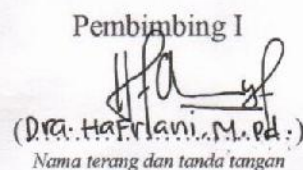 Pembimbing I
(Dra. Hafriani, M.Pd.)
Nama terang dan tanda tangan